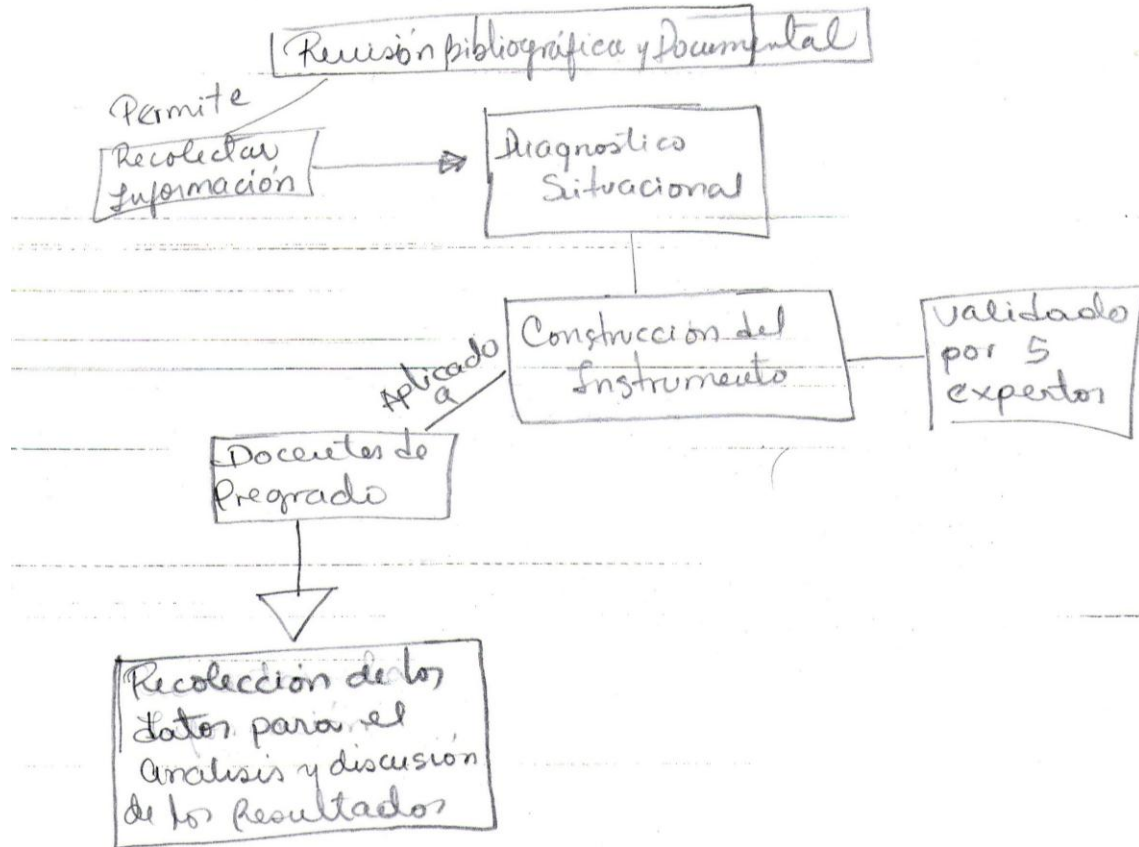 Revisión bibliográfica y Documental
Permite
Recolectar
Información
Diagnostico
Situacional
Construcción del
Instrumento
validado
por 5
expertos
Aplicado
a
Docentes de
Pregrado
Recolección de los
datos para el
analisis y discusión
de los Resultados